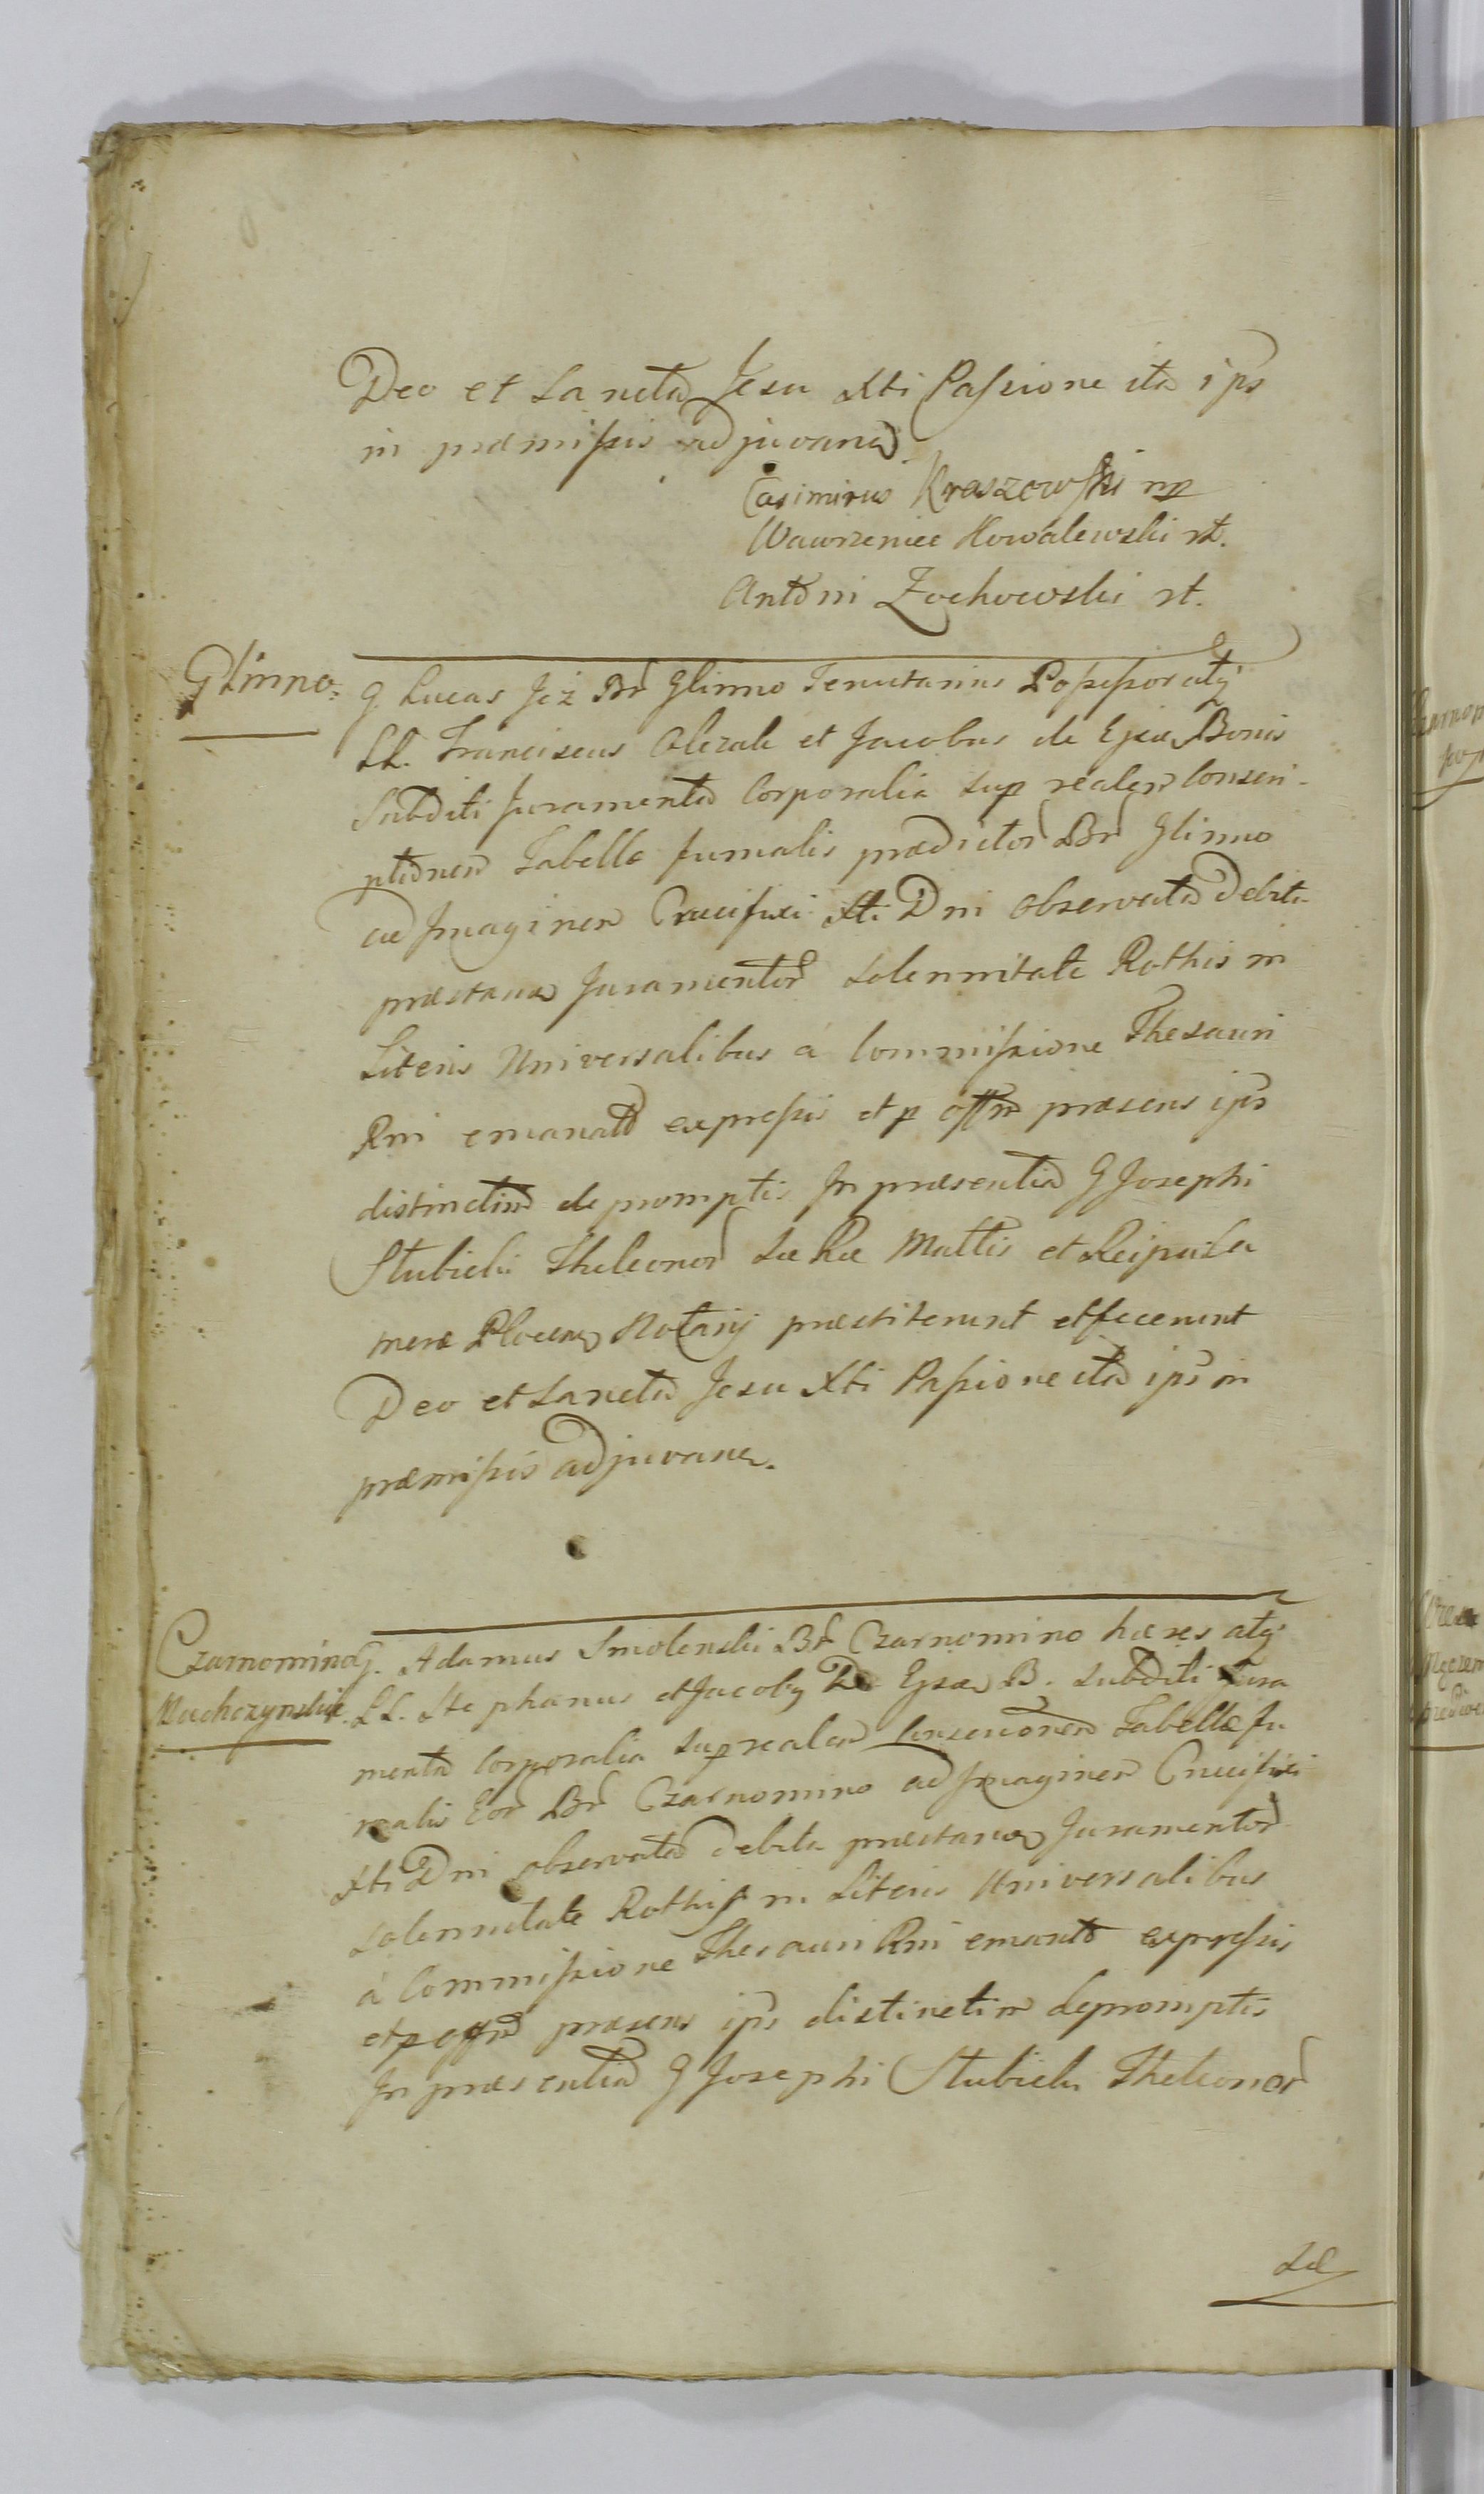 Deo et Sancta Jesu Xti Passione ita ips
in præmissis adjuvan
Casimirus Kraszewski mp
Wawrzeniec Kowalewski rt.
Antoni Zochowski rt.
Glinno.
G Lucas Jeż Br Glinno Tenutarius Possessor atq
LL. Franciscus Olczak et Jacobus de Ejsd Bonis
Subditi Juramenta Corporalia sup realem Conscri-
ptionem Tabellæ fumalis prædictor Br Glinno
ad Imaginem Crucifixi Xti Dni observata debita
præstan Juramentor Solennitate Rothis in
Literis Universalibus a Commissione Thesauri
Rni emanat expressis et p offm præsens ips
distinctim depromptis In præsentia G Josephi
Stubicki Theleonor Sæ Ræ Mattis et Reipu
meræ Plocen Notarij præstiterunt et fecerunt
Deo et Sancta Jesu Xti Passione ita ips in
præmissis adjuvan.
Czarnomino
G. Adamus Smolenski Br Czarnomino hæres atq
LL. Stephanus et Jacobg De Ejsd B. Subditi Jura
menta Corporalia sup realem Conscrionem Tabellæ fu
malis Eor Br Czarnomino ad Imaginem Crucifixi
Xti Dni observata debita præstan Juramentor
Solennitate Rothis in Literis Universalibus
á Commissione Thesauri Rni emant expressis
et p offm præsens ips distinctim depromptis
In præsentia G Josephi Stubicki Theleonor
Sæ